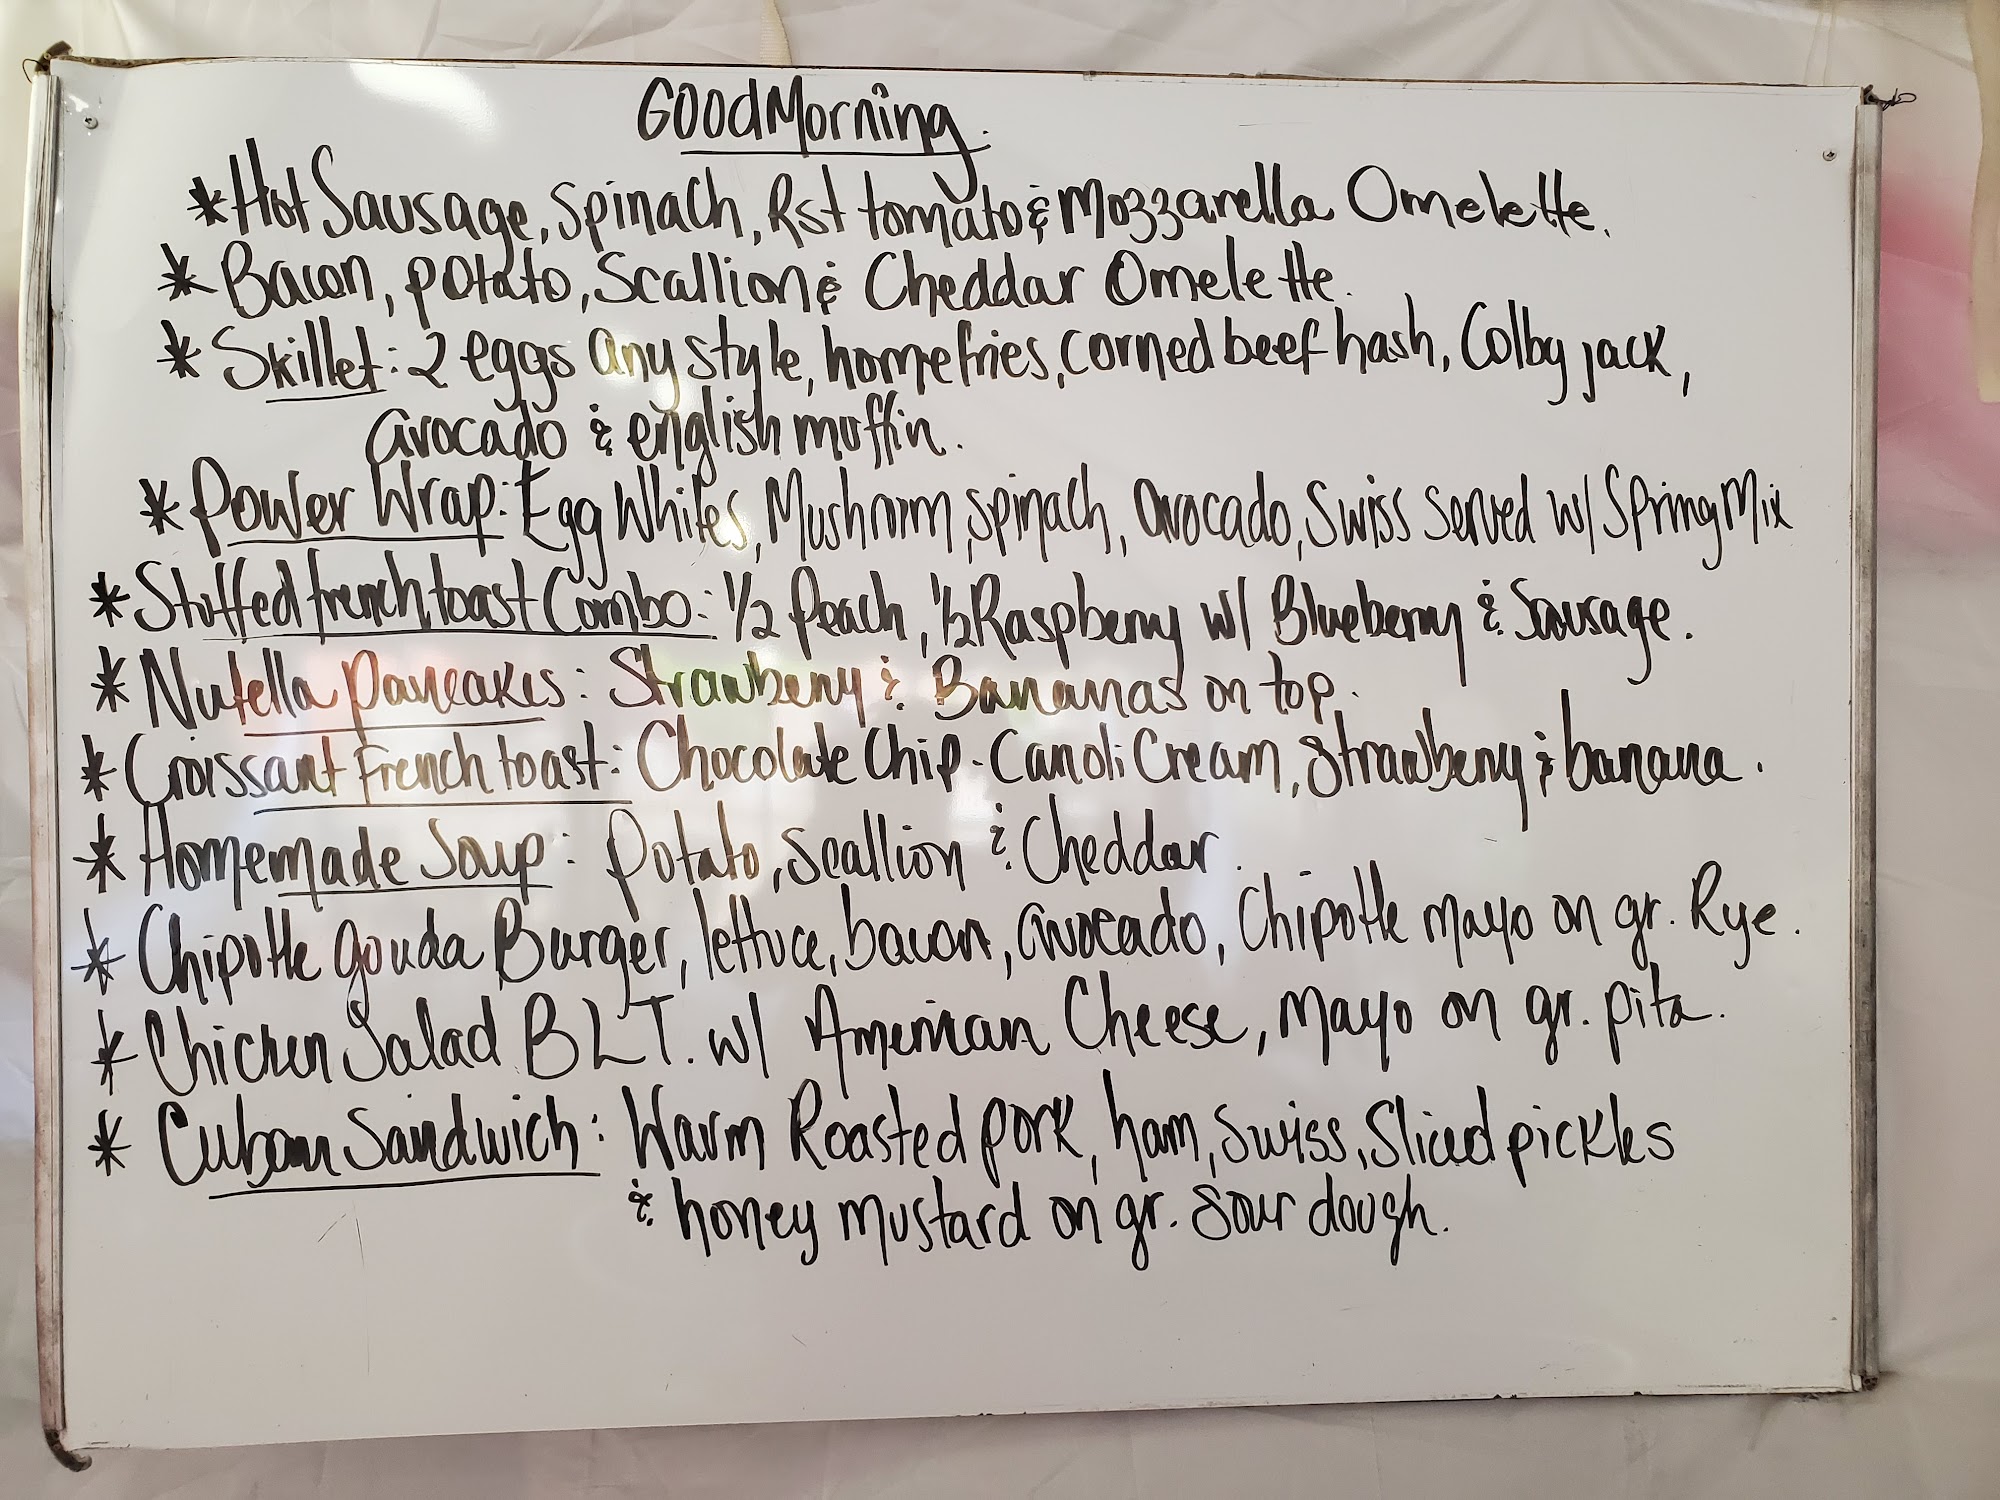 Good Morning.
* Hot Sausage, Spinach, Rst tomato & Mozzarella Omelette.
* Bacon, potato, Scallion & Cheddar Omelette.
* Skillet: 2 eggs any style, homefries, corned beef hash, Colby jack,
avocado & english muffin.
* Power Wrap: Egg Whites, Mushroom, spinach, avocado, Swiss Served w/ Spring Mix
* Stuffed french toast Combo: 1/2 Peach, 1/2 Raspberry w/ Blueberry & Sausage.
* Nutella pancakes: Strawberry & Bananas on top.
* Croissant French toast: Chocolate Chip-Canoli Cream, Strawberry & banana.
* Homemade Soup: Potato, Scallion & Cheddar.
* Chipotle gouda Burger, lettuce, bacon, avocado, Chipotle mayo on gr. Rye.
* Chicken Salad BLT. w/ American Cheese, mayo on gr. pita.
* Cuban Sandwich: Warm Roasted pork, ham, Swiss, Sliced pickles
& honey mustard on gr. Sour dough.